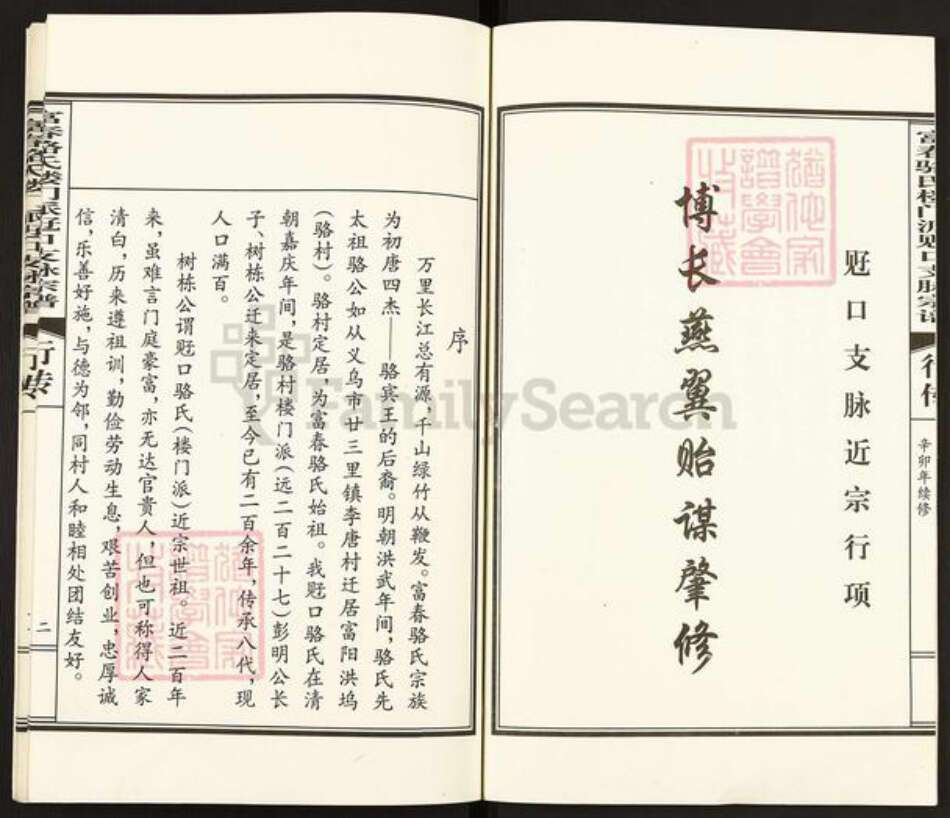 富春骆氏楼门派贶口支脉宗谱
行传
辛卯年续修
贶口支脉近宗行项
博长燕翼贻谋肇修
序
万里长江总有源,千山绿竹从鞭发。富春骆氏宗族
为初唐四杰——骆宾王的后裔。明朝洪武年间,骆氏先
太祖骆公如从义乌市廿三里镇李唐村迁居富阳洪坞
(骆村)。骆村定居,为富春骆氏始祖。我贶口骆氏在清
朝嘉庆年间,是骆村楼门派(远二百二十七)彭明公长
子、树栋公迁来定居,至今已有二百余年,传承八代,现
人口满百。
树栋公谓贶口骆氏(楼门派)近宗世祖。近二百年
来,虽难言门庭豪富,亦无达官贵人,但也可称得人家
清白,历来遵祖训,勤俭劳动生息,艰苦创业,忠厚诚
信,乐善好施,与德为邻,同村人和睦相处团结友好。
二
FamilySearch